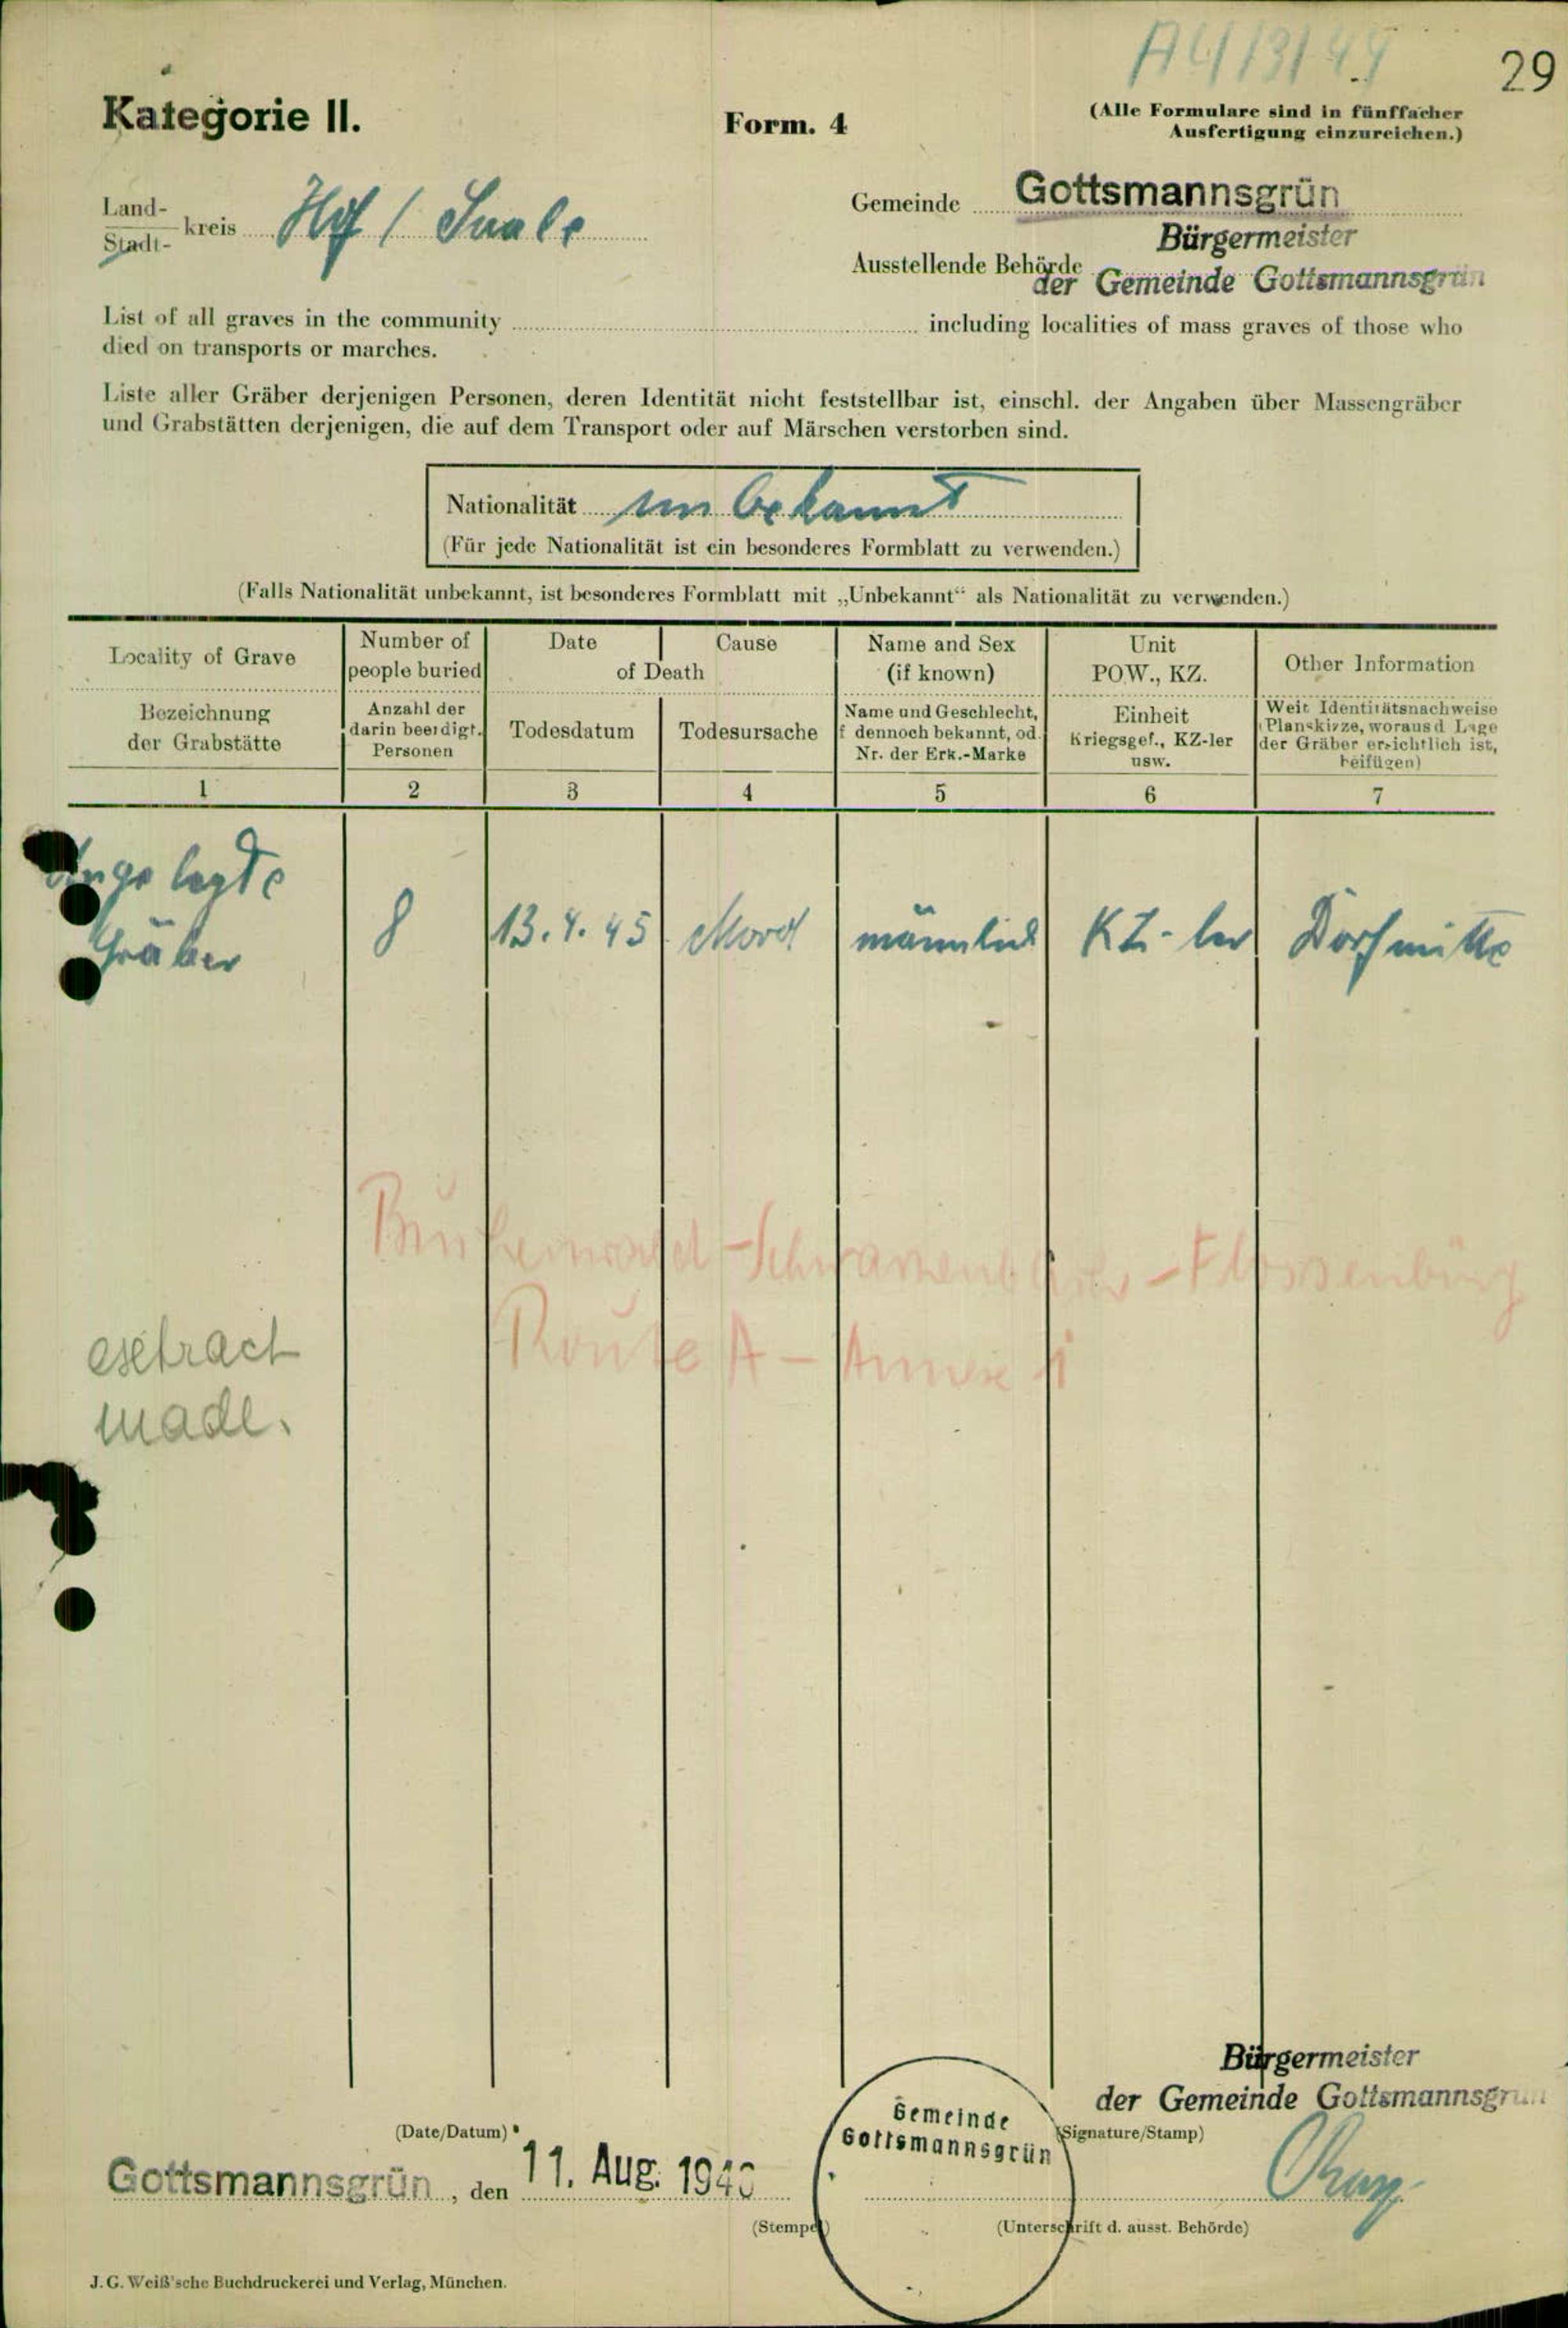 A4/13/49
29
Kategorie II.
Form. 4
(Alle Formulare sind in fünffacher
Ausfertigung einzureichen.)
Land-
Stadt-
kreis Hof / Saale
Gemeinde Gottsmannsgrün
Bürgermeister
Ausstellende Behörde der Gemeinde Gottsmannsgrün
List of all graves in the community including localities of mass graves of those who
died on transports or marches.
Liste aller Gräber derjenigen Personen, deren Identität nicht feststellbar ist, einschl. der Angaben über Massengräber
und Grabstätten derjenigen, die auf dem Transport oder auf Märschen verstorben sind.
Nationalität unbekannt
(Für jede Nationalität ist ein besonderes Formblatt zu verwenden.)
(Falls Nationalität unbekannt, ist besonderes Formblatt mit „Unbekannt“ als Nationalität zu verwenden.)
Locality of Grave
Number of
people buried
Date
Cause
of Death
Name and Sex
(if known)
Unit
POW., KZ.
Other Information
Bezeichnung
der Grabstätte
Anzahl der
darin beerdigt.
Personen
Todesdatum
Todesursache
Name und Geschlecht,
f dennoch bekannt, od.
Nr. der Erk.-Marke
Einheit
Kriegsgef., KZ-ler
usw.
Weit. Identitätsnachweise
(Planskizze, woraus d Lage
der Gräber ersichtlich ist,
beifügen)
1 2 3 4 5 6 7
Angelegte
Gräber
8
13.4.45
Mord
männlich
KZ-ler
Dorfmitte
Buchenwald - Schwarzenbach - Flossenbürg
Route A - Annex 1
extract
made.
Bürgermeister
der Gemeinde Gottsmannsgrün
(Date/Datum)
(Signature/Stamp)
Gemeinde
Gottsmannsgrün
Gottsmannsgrün, den 11. Aug. 194
(Stempel)
(Unterschrift d. ausst. Behörde)
J. G. Weiß'sche Buchdruckerei und Verlag, München.